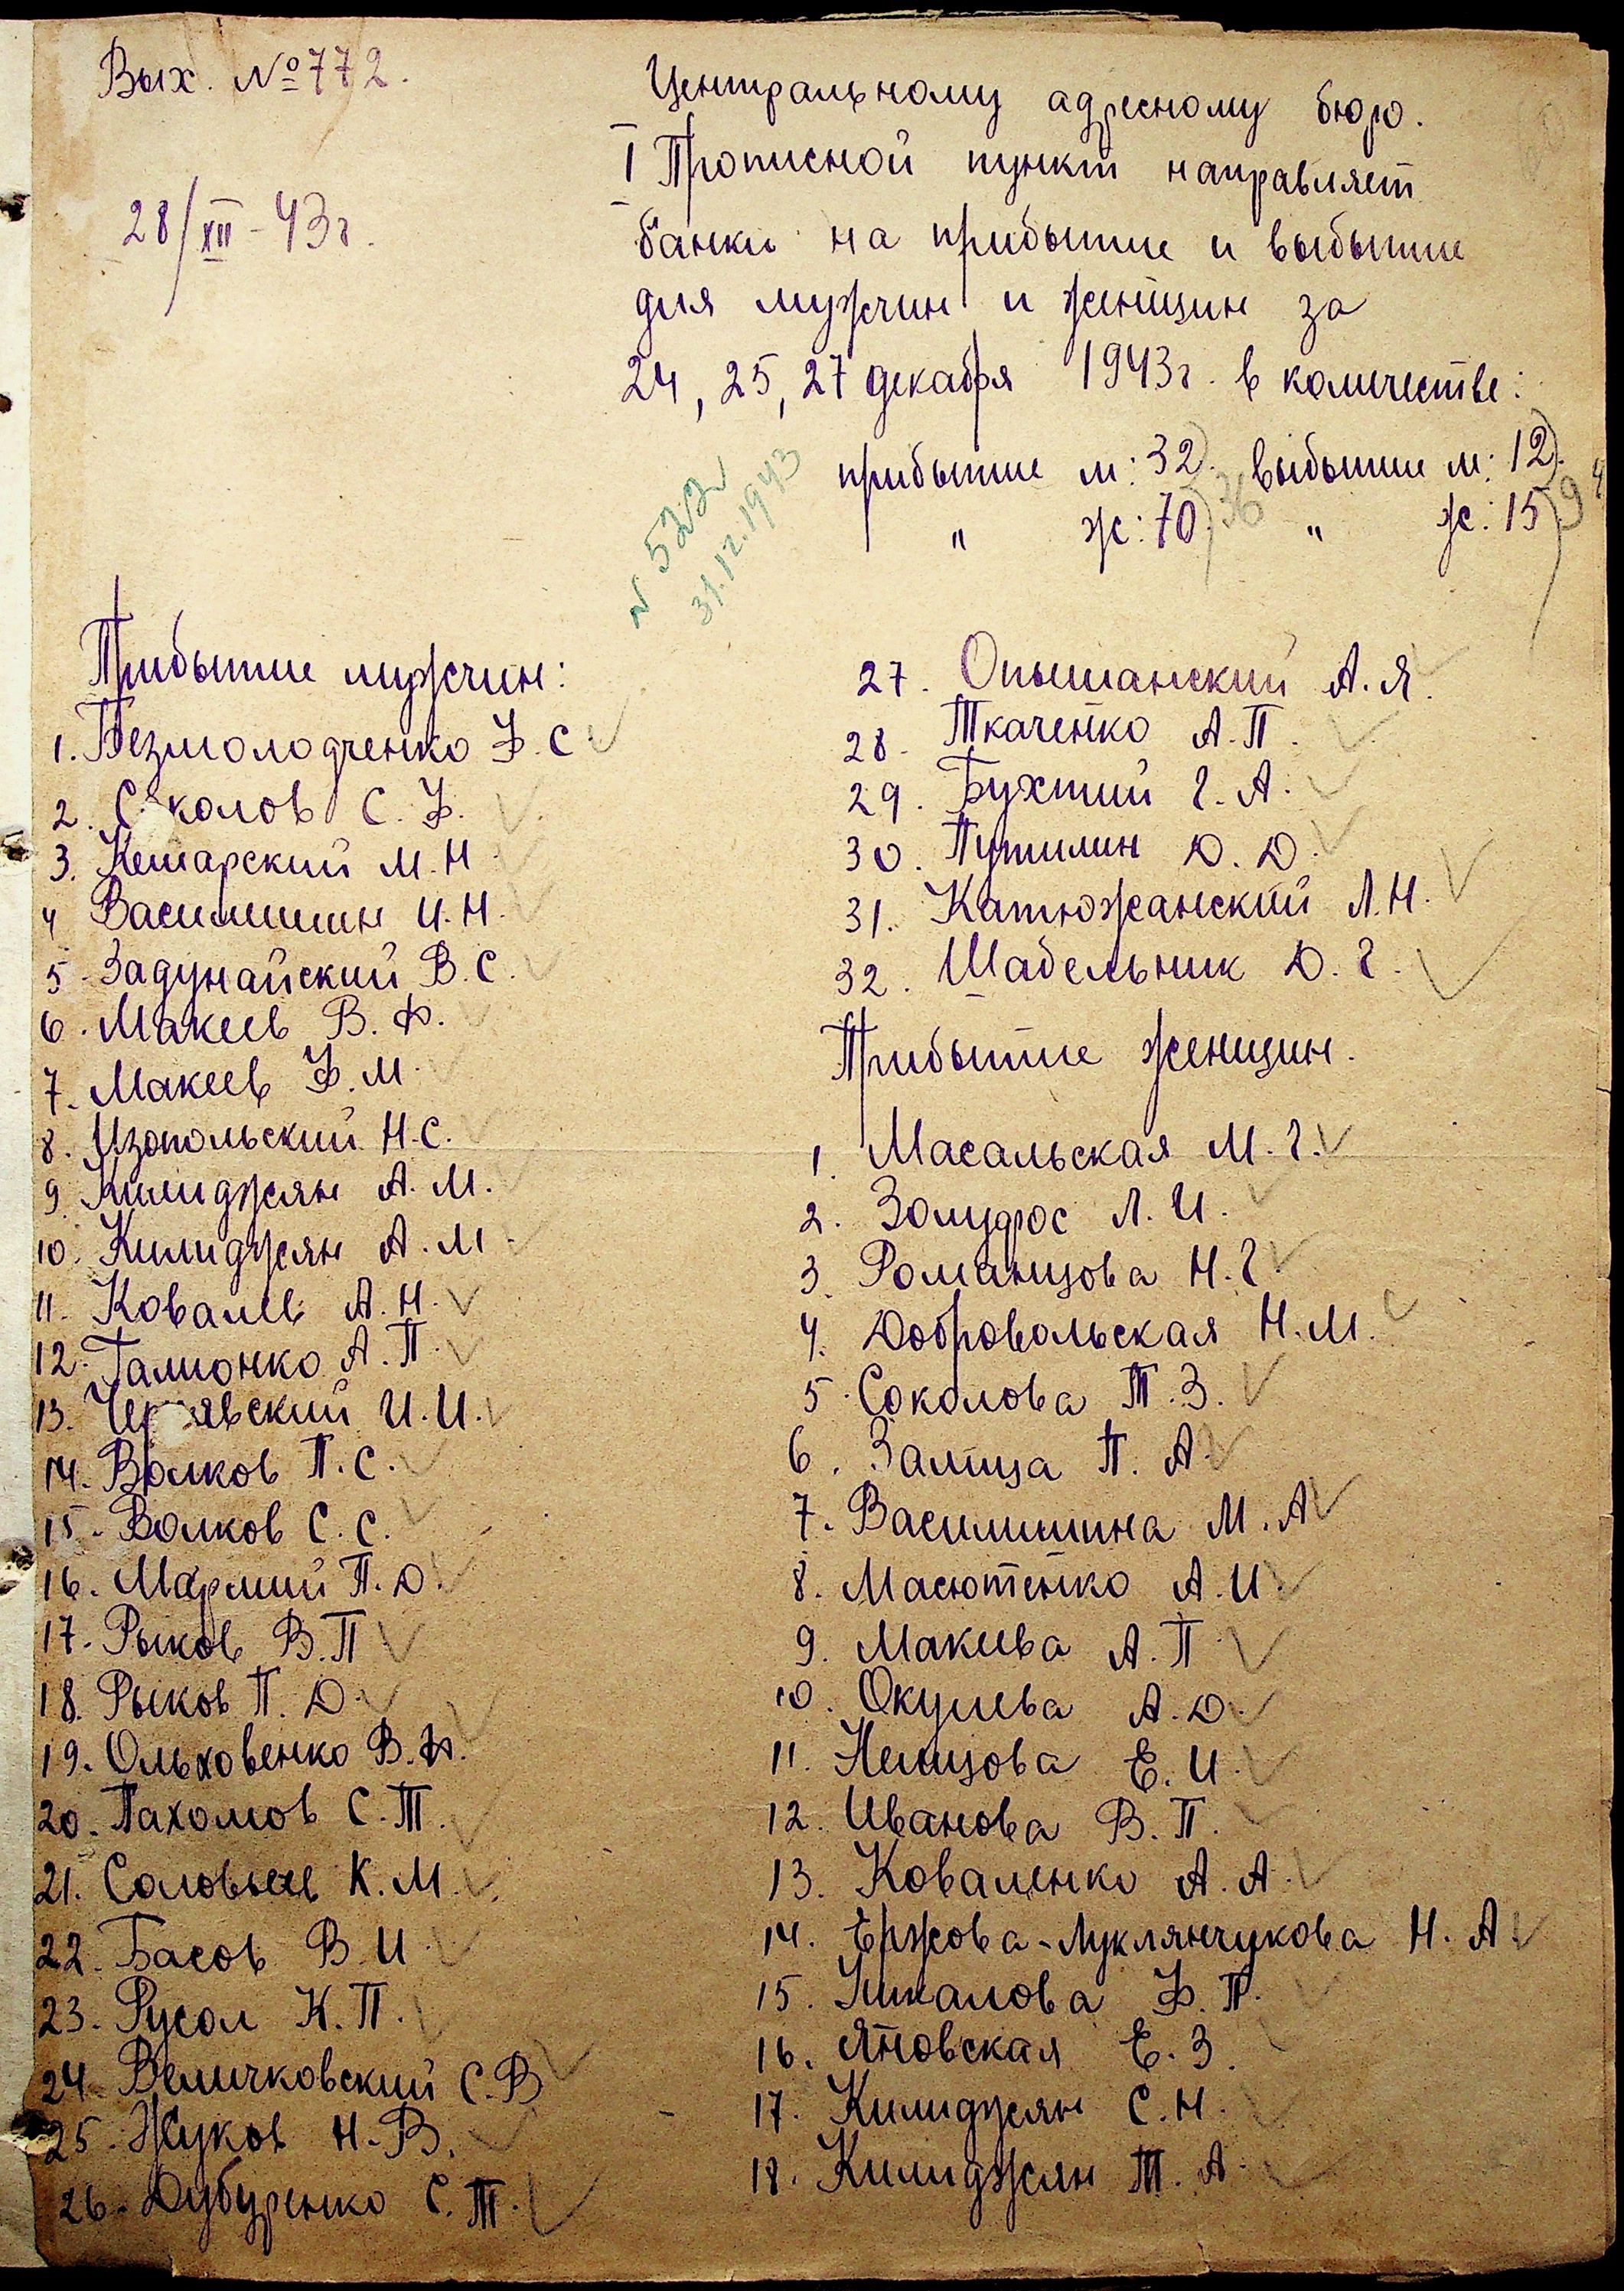 Вых. №772.
28/XII-43г.
Центральному адресному бюро.
I Прописной пункт направляет
банки на прибытие и выбытие
для мужчин и женщин за
24, 25, 27 декабря 1943г. в количестве:
прибытие м: 32). выбытие м: 12).
" ж: 70) " ж: 15)
№ 522
31.12.1943
Прибытие мужчин:
1. Безмолодченко Ф. С
2. Соколов С. Ф.
3. Кешарский М. Н
4 Василишин И. Н.
5. Задунайский В. С.
6. Макеев В. Ф.
7. Макеев Ф. М.
8. Изопольский Н. С.
9 Килиджян А. М.
10. Килиджян А. М
11. Ковалев А. Н.
12. Галионко А. П.
13. Чернявский И. И.
14. Волков П. С.
15. Волков С. С.
16. Марший П. Д.
17. Рыков В. П
18. Рыков П. Д.
19. Ольховенко В. Ф.
20. Пахомов С. Т.
21. Соловьев К. М.
22. Басов В. И
23. Русол К. П.
24. Величковский С. В
25. Жуков Н. В.
26. Дубуренко С. Т.
27. Опышанский А. Я.
28. Ткаченко А. П.
29. Бухтий Г. А.
30. Путилин Д. Д.
31. Катюжанский Л. Н.
32. Шабельник Д. Г.
Прибытие женщин.
1 Масальская М. Г.
2. Золудрос Л. И.
3. Романцова Н. Г
4. Добровольская Н. М.
5. Соколова Т. З.
6. Залица П. А
7. Василишина М. А
8. Масютенко А. И.
9. Макеева А. П
10. Окулева А. Д.
11. Немцова Е. И.
12. Иванова В. П.
13. Коваленко А. А.
14. Ержова-Луклянчукова Н. А
15. Никалова Ф. П.
16. Яновская Е. З.
17. Килиджян С. Н.
18. Килиджян Т. А.